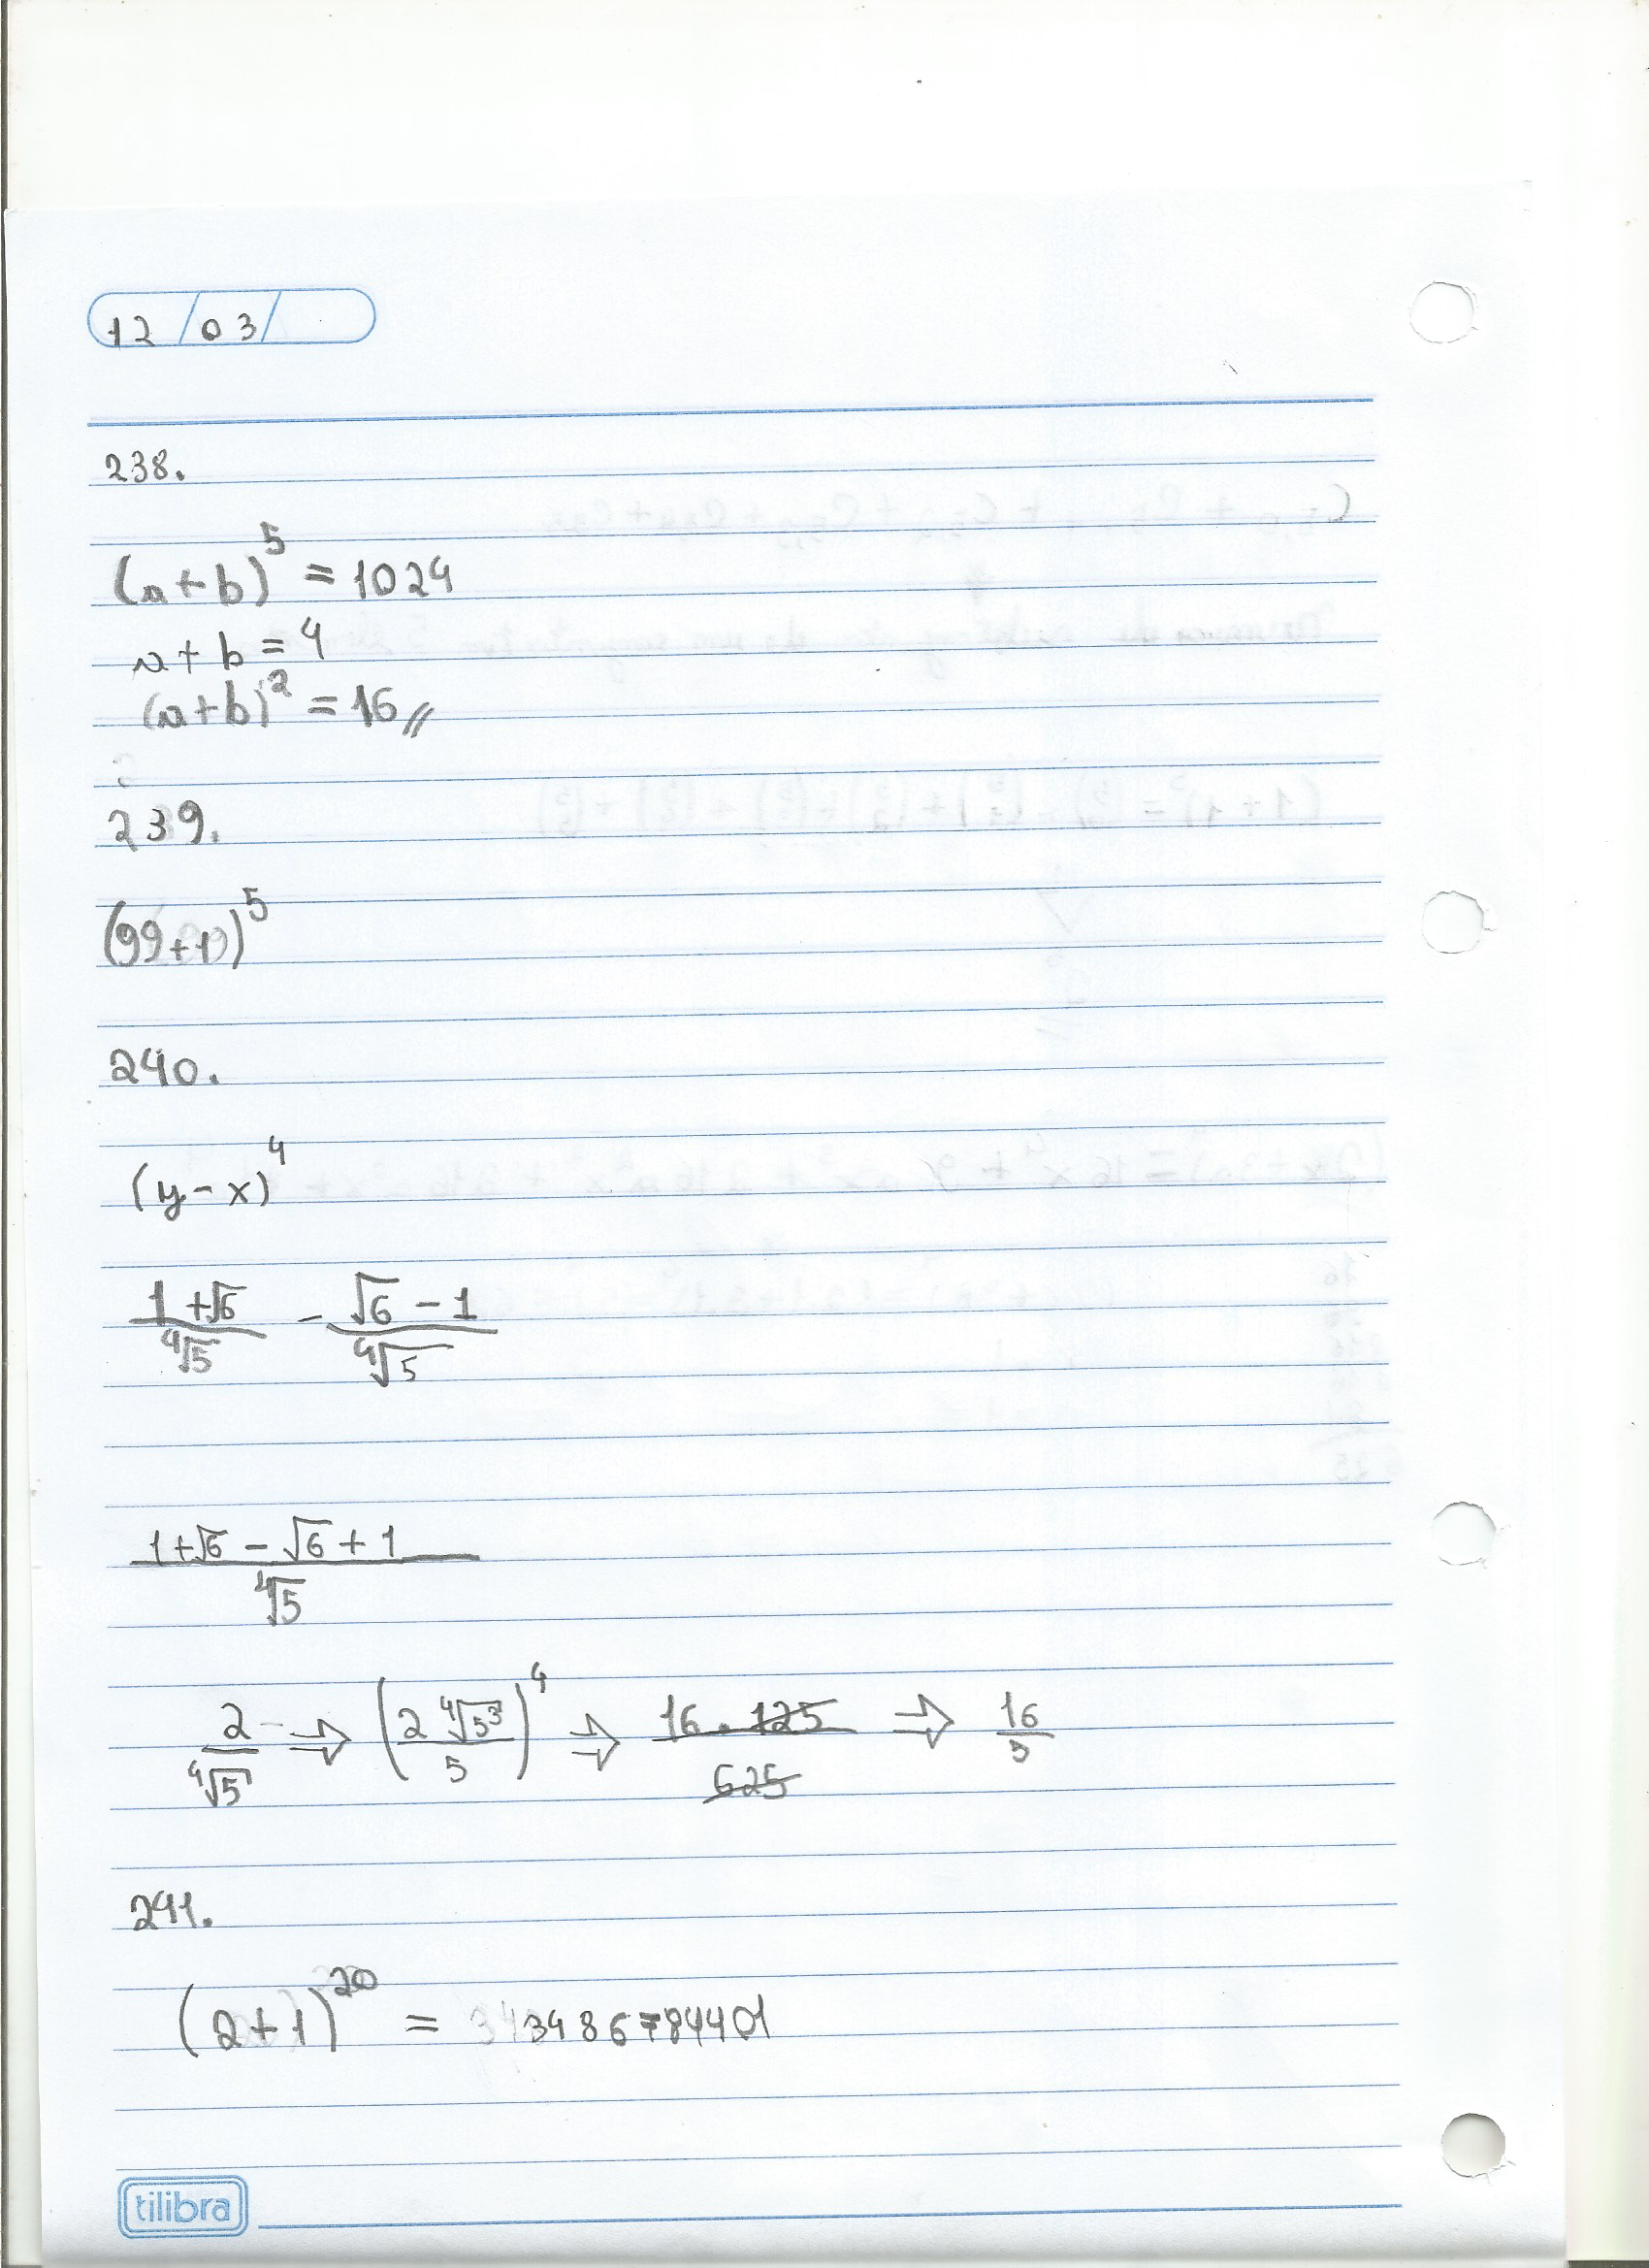 12/03/
238.
(a+b)^5 = 1024
a+b = 4
(a+b)^2 = 16//
239.
(99+1)^5
240.
(y-x)^4
1+√6/∜5 - √6-1/∜5
1+√6-√6+1/∜5
2/∜5 ⇒ (2∜5³/5)^4 ⇒ 16.125/625 ⇒ 16/5
241.
(2+1)^20 = 3486784401
tilibra